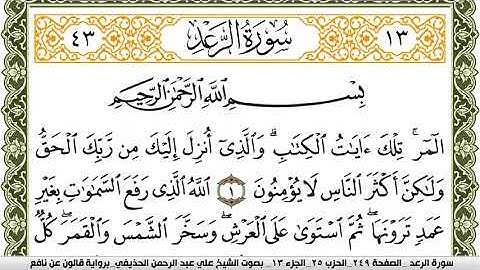 ٤٣ سُورَةُ الرَّعْدِ ١٣
بِسْمِ اللَّهِ الرَّحْمَٰنِ الرَّحِيمِ
الٓمٓرۚ تِلْكَ ءَايَٰتُ الْكِتَٰبِۗ وَالَّذِىٓ أُنزِلَ إِلَيْكَ مِن رَّبِّكَ الْحَقُّ
وَلَٰكِنَّ أَكْثَرَ النَّاسِ لَا يُؤْمِنُونَ ١ اللَّهُ الَّذِى رَفَعَ السَّمَٰوَٰتِ بِغَيْرِ
عَمَدٍ تَرَوْنَهَاۖ ثُمَّ اسْتَوَىٰ عَلَى الْعَرْشِۖ وَسَخَّرَ الشَّمْسَ وَالْقَمَرَۖ كُلٌّ
سورة الرعد _الصفحة ٢٤٩_الحزب ٢٥_الجزء ١٣_ بصوت الشيخ علي عبد الرحمن الحذيفي_برواية قالون عن نافع